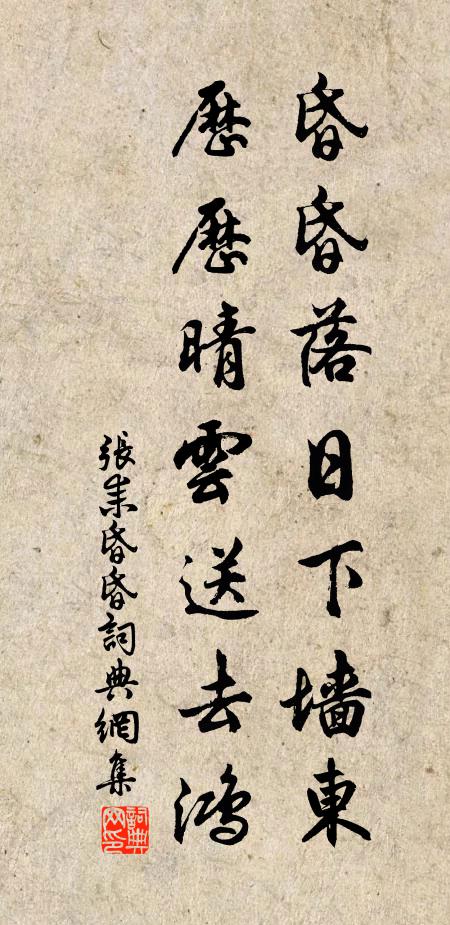 昏昏落日下墙東
歷歷晴雲送去鴻
張耒昏昏詞典網集
詞典网印